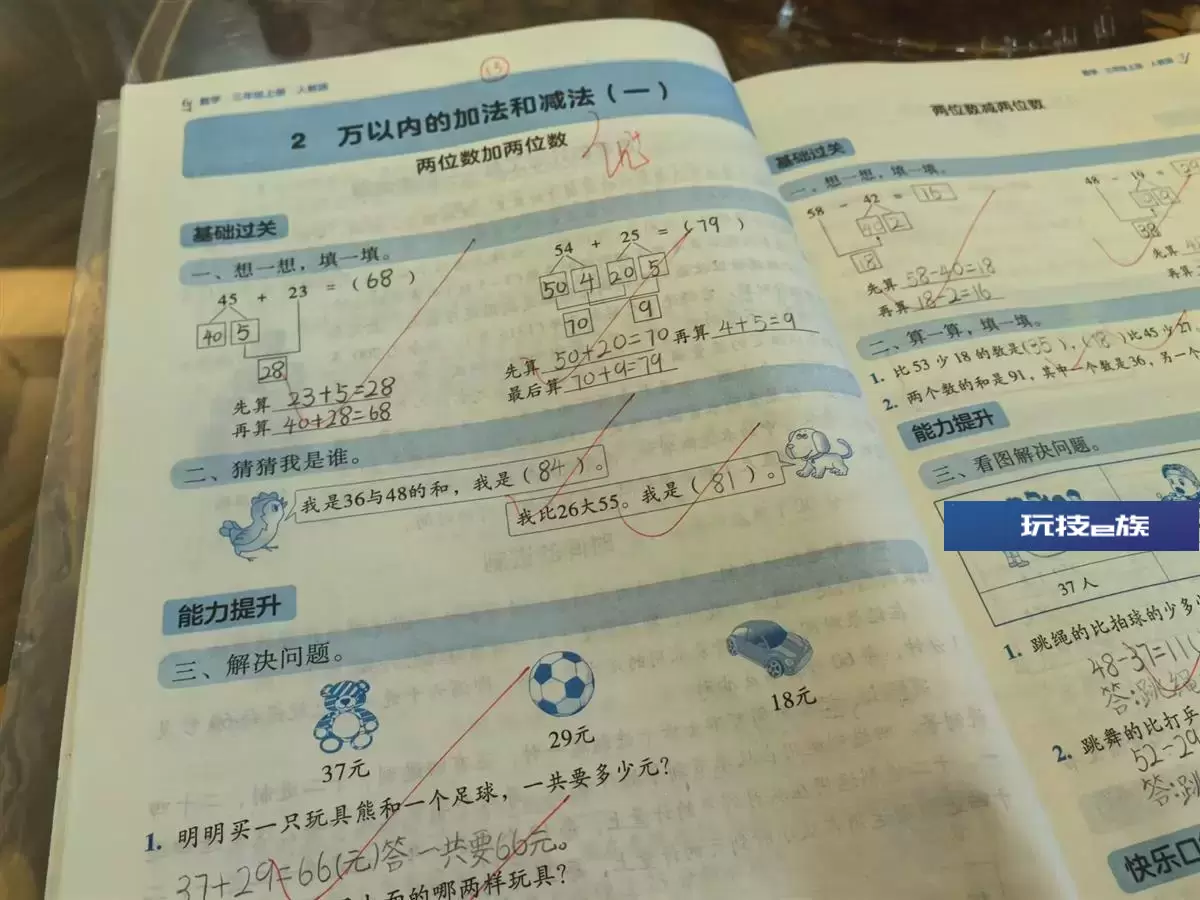 数学 三年级上册 人教版
13
2 万以内的加法和减法（一）
两位数加两位数
基础过关
一、想一想，填一填。
45 + 23 = (68)
40 5
28
先算 23+5=28
再算 40+28=68
54 + 25 = (79)
50 4 20 5
70 9
先算 50+20=70 再算 4+5=9
最后算 70+9=79
二、猜猜我是谁。
我是36与48的和，我是（84）。
我比26大55。我是（81）。
能力提升
三、解决问题。
37元
29元
18元
1. 明明买一只玩具熊和一个足球，一共要多少元？
37+29=66(元)答:一共要66元。
面的哪两样玩具？
数学 三年级上册 人教版
两位数减两位数
基础过关
一、想一想，填一填。
58 - 42 = 16
40 2
18
先算 58-40=18
再算 18-2=16
48 - 19 =
38
先算
再算
二、算一算，填一填。
1. 比53少18的数是(35)，(18)比45少27。
2. 两个数的和是91，其中一个数是36，另一个
能力提升
三、看图解决问题。
玩技e族
37人
1. 跳绳的比拍球的多多少
48-37=11(
答:跳绳
2. 跳舞的比打乒
52-29
答:跳
快乐口